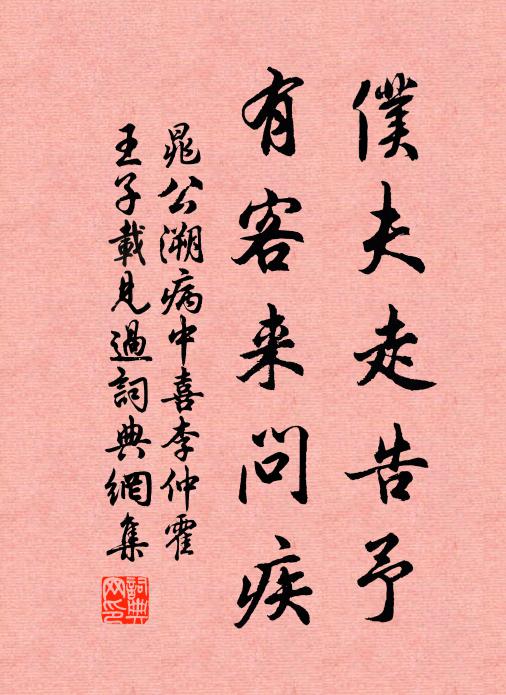 僕夫走告予
有客来問疾
晁公溯病中喜李仲霍
王子載見過詞典網集
詞典網印